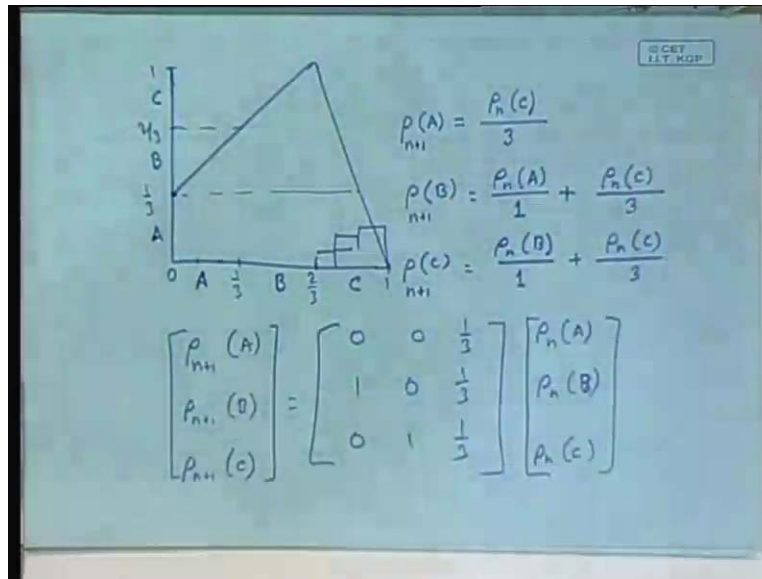 © CET
I.I.T. KGP
1
C
2/3
B
1/3
A
0 A 1/3 B 2/3 C 1
ρ_{n+1}(A) = ρ_n(C)/3
ρ_{n+1}(B) = ρ_n(A)/1 + ρ_n(C)/3
ρ_{n+1}(C) = ρ_n(B)/1 + ρ_n(C)/3
[ρ_{n+1}(A)] [0 0 1/3] [ρ_n(A)]
[ρ_{n+1}(B)] = [1 0 1/3] [ρ_n(B)]
[ρ_{n+1}(C)] [0 1 1/3] [ρ_n(C)]